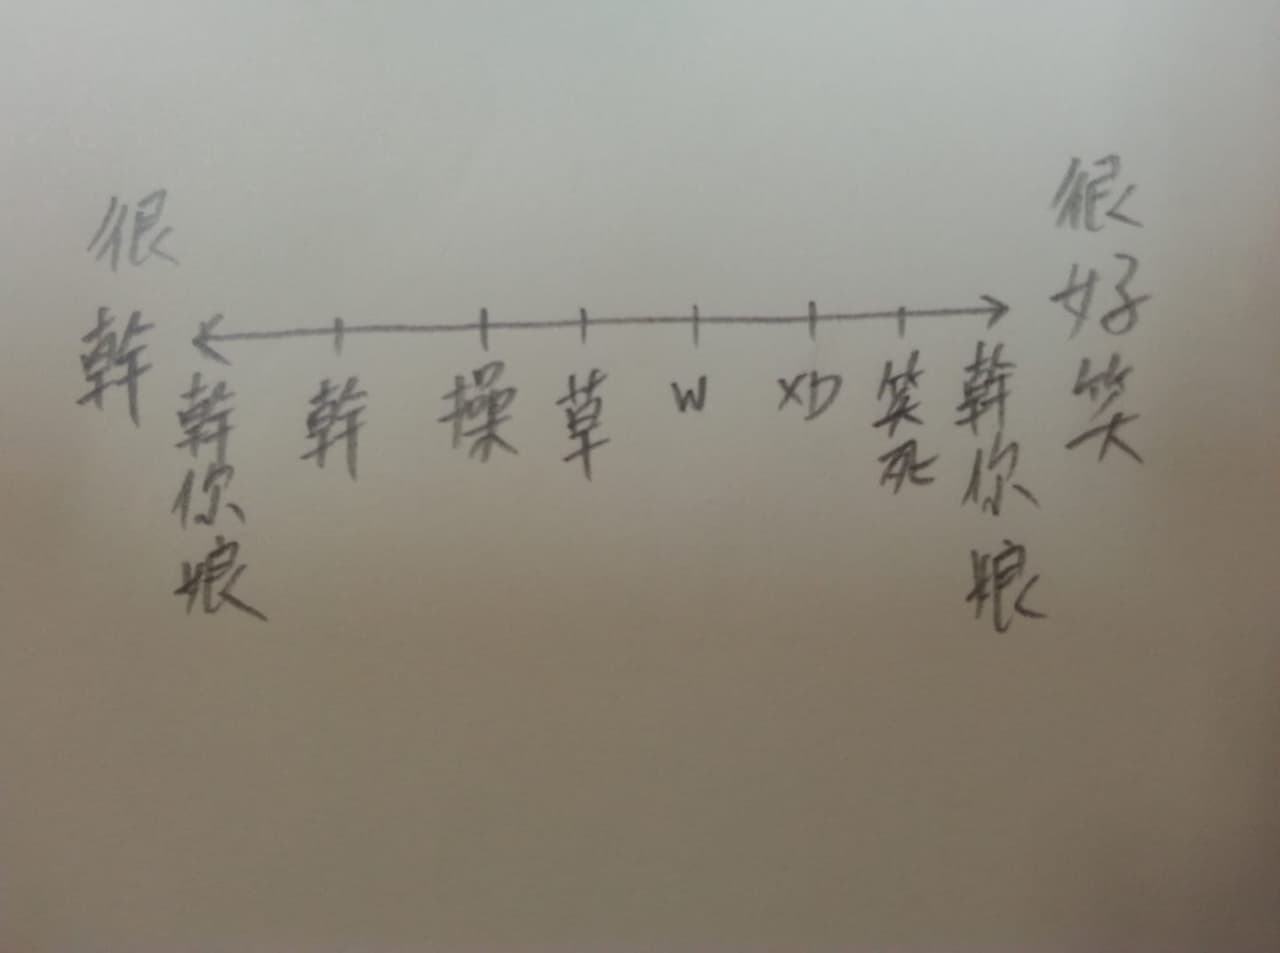 很幹
幹你娘
幹
操
草
w
XD
笑死
幹你娘
很好笑